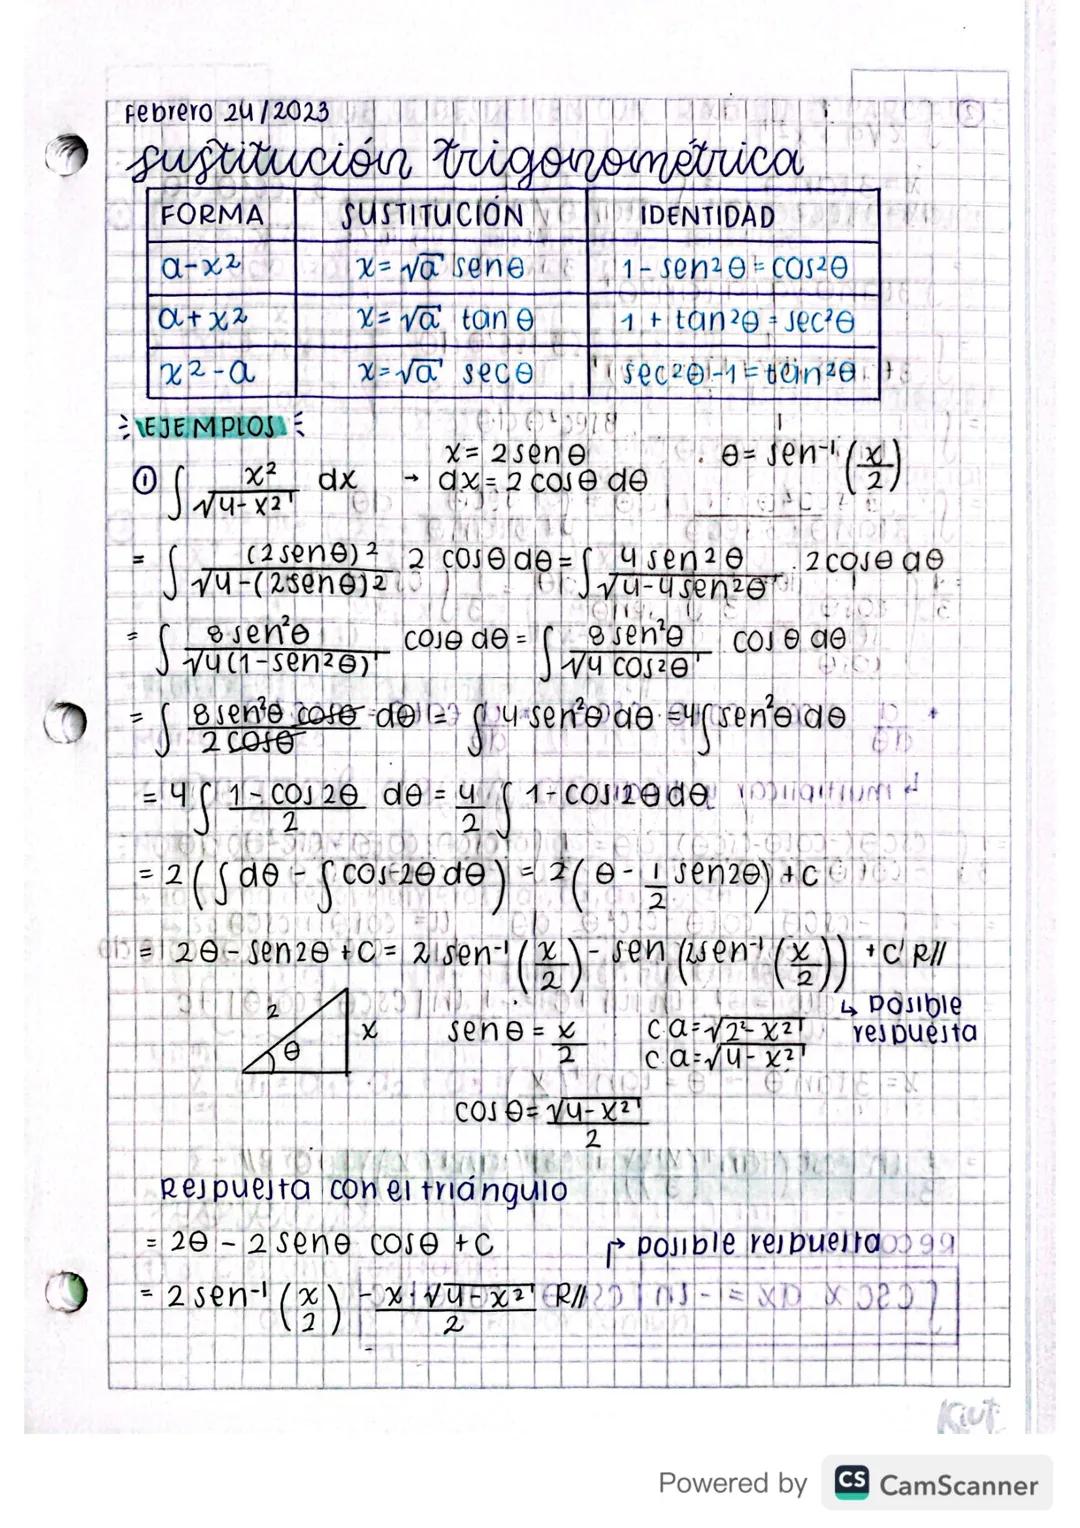 Febrero 24/2023
sustitución trigonométrica
FORMA SUSTITUCIÓN IDENTIDAD
a-x² x=√a senθ 1-sen²θ=cos²θ
a+x² x=√a tanθ 1+tan²θ=sec²θ
x²-a x=√a secθ sec²θ-1=tan²θ
EJEMPLOS
① ∫ x²/√4-x² dx → x=2senθ dx=2cosθ dθ θ=sen⁻¹(x/2)
= ∫ (2senθ)²/√4-(2senθ)² 2 cosθ dθ = ∫ 4sen²θ/√4-4sen²θ . 2cosθ dθ
= ∫ 8sen²θ/√4(1-sen²θ) cosθ dθ = ∫ 8sen²θ/√4cos²θ cosθ dθ
= ∫ 8sen²θ cosθ/2cosθ dθ = ∫ 4 sen²θ dθ = 4∫sen²θ dθ
= 4∫ 1-cos2θ/2 dθ = 4/2 ∫ 1-cos2θ dθ
= 2(∫dθ - ∫cos2θ dθ) = 2(θ - 1/2 sen2θ)+C
= 2θ-sen2θ+C = 2sen⁻¹(x/2) - sen(2sen⁻¹(x/2)) +C R//
↳ posible
respuesta
2 x θ
senθ = x/2 c.a=√2²-x²
c.a=√4-x²
cosθ=√4-x²/2
Respuesta con el triángulo
= 2θ - 2senθ cosθ +C ↱ posible respuesta
= 2sen⁻¹(x/2) - x·√4-x²/2 R//
Kiut
Powered by CS CamScanner